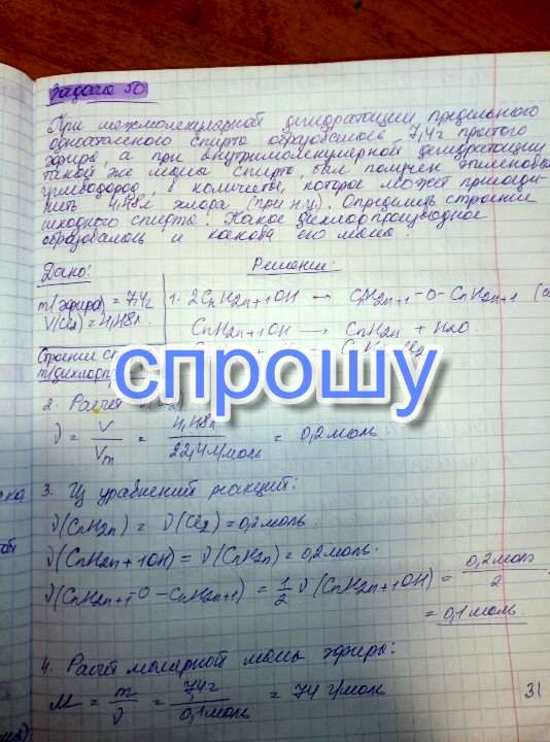 Задача 50
При межмолекулярной дегидратации предельного
одноатомного спирта образовалось 7,4г простого
эфира, а при внутримолекулярной дегидратации
такой же массы спирта был получен этиленовый
углеводород в количестве, которое может присоеди-
нить 4,48л хлора (при н.у.). Определить строение
исходного спирта. Какое дихлорпроизводное
образовалось и какова его масса.
Дано: Решение:
m(эфира) = 7,4г 1. 2CnH2n+1OH → CnH2n+1-O-CnH2n+1
V(Cl2) = 4,48л CnH2n+1OH → CnH2n + H2O
Строение
спрошу
2. Расчёт
ν = V/Vm = 4,48л/22,4л/моль = 0,2моль
3. Из уравнений реакций:
ν(CnH2n) = ν(Cl2) = 0,2моль.
ν(CnH2n+1OH) = ν(CnH2n) = 0,2моль.
ν(CnH2n+1-O-CnH2n+1) = 1/2 ν(CnH2n+1OH) = 0,2моль/2
= 0,1моль
4. Расчёт молярной массы эфира:
M = m/ν = 7,4г/0,1моль = 74 г/моль
31